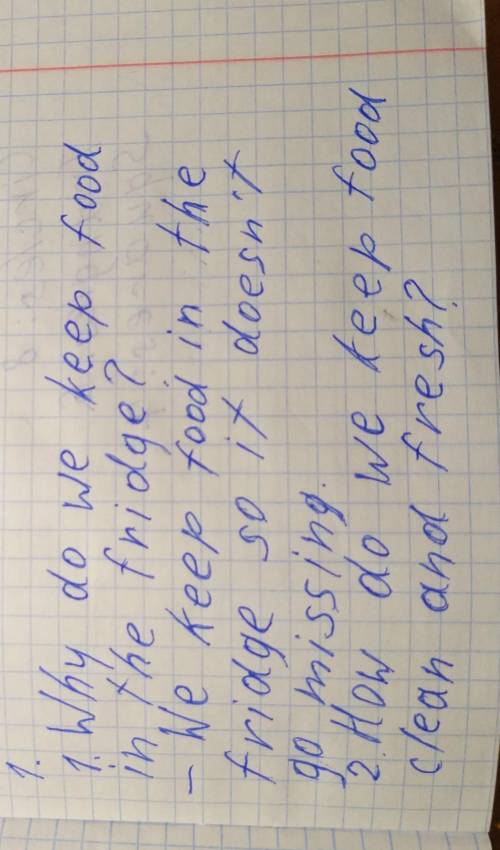 1.
1. Why do we keep food
in the fridge?
- We keep food in the
fridge so it doesn't
go missing.
2. How do we keep food
clean and fresh?